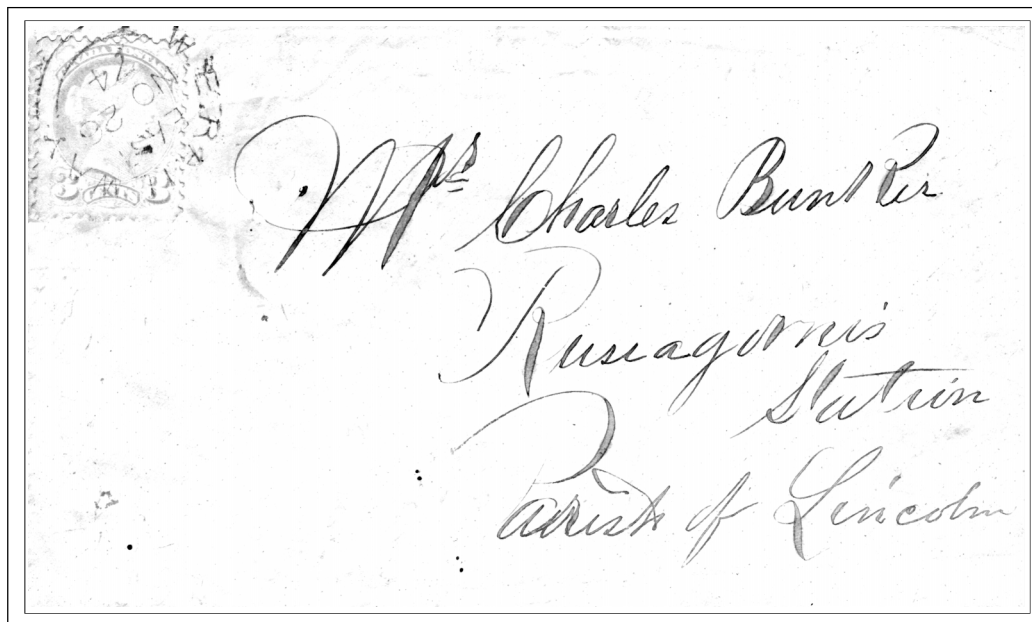 Mrs Charles Bunker
Rusiagornis
Station
Parish of Lincoln